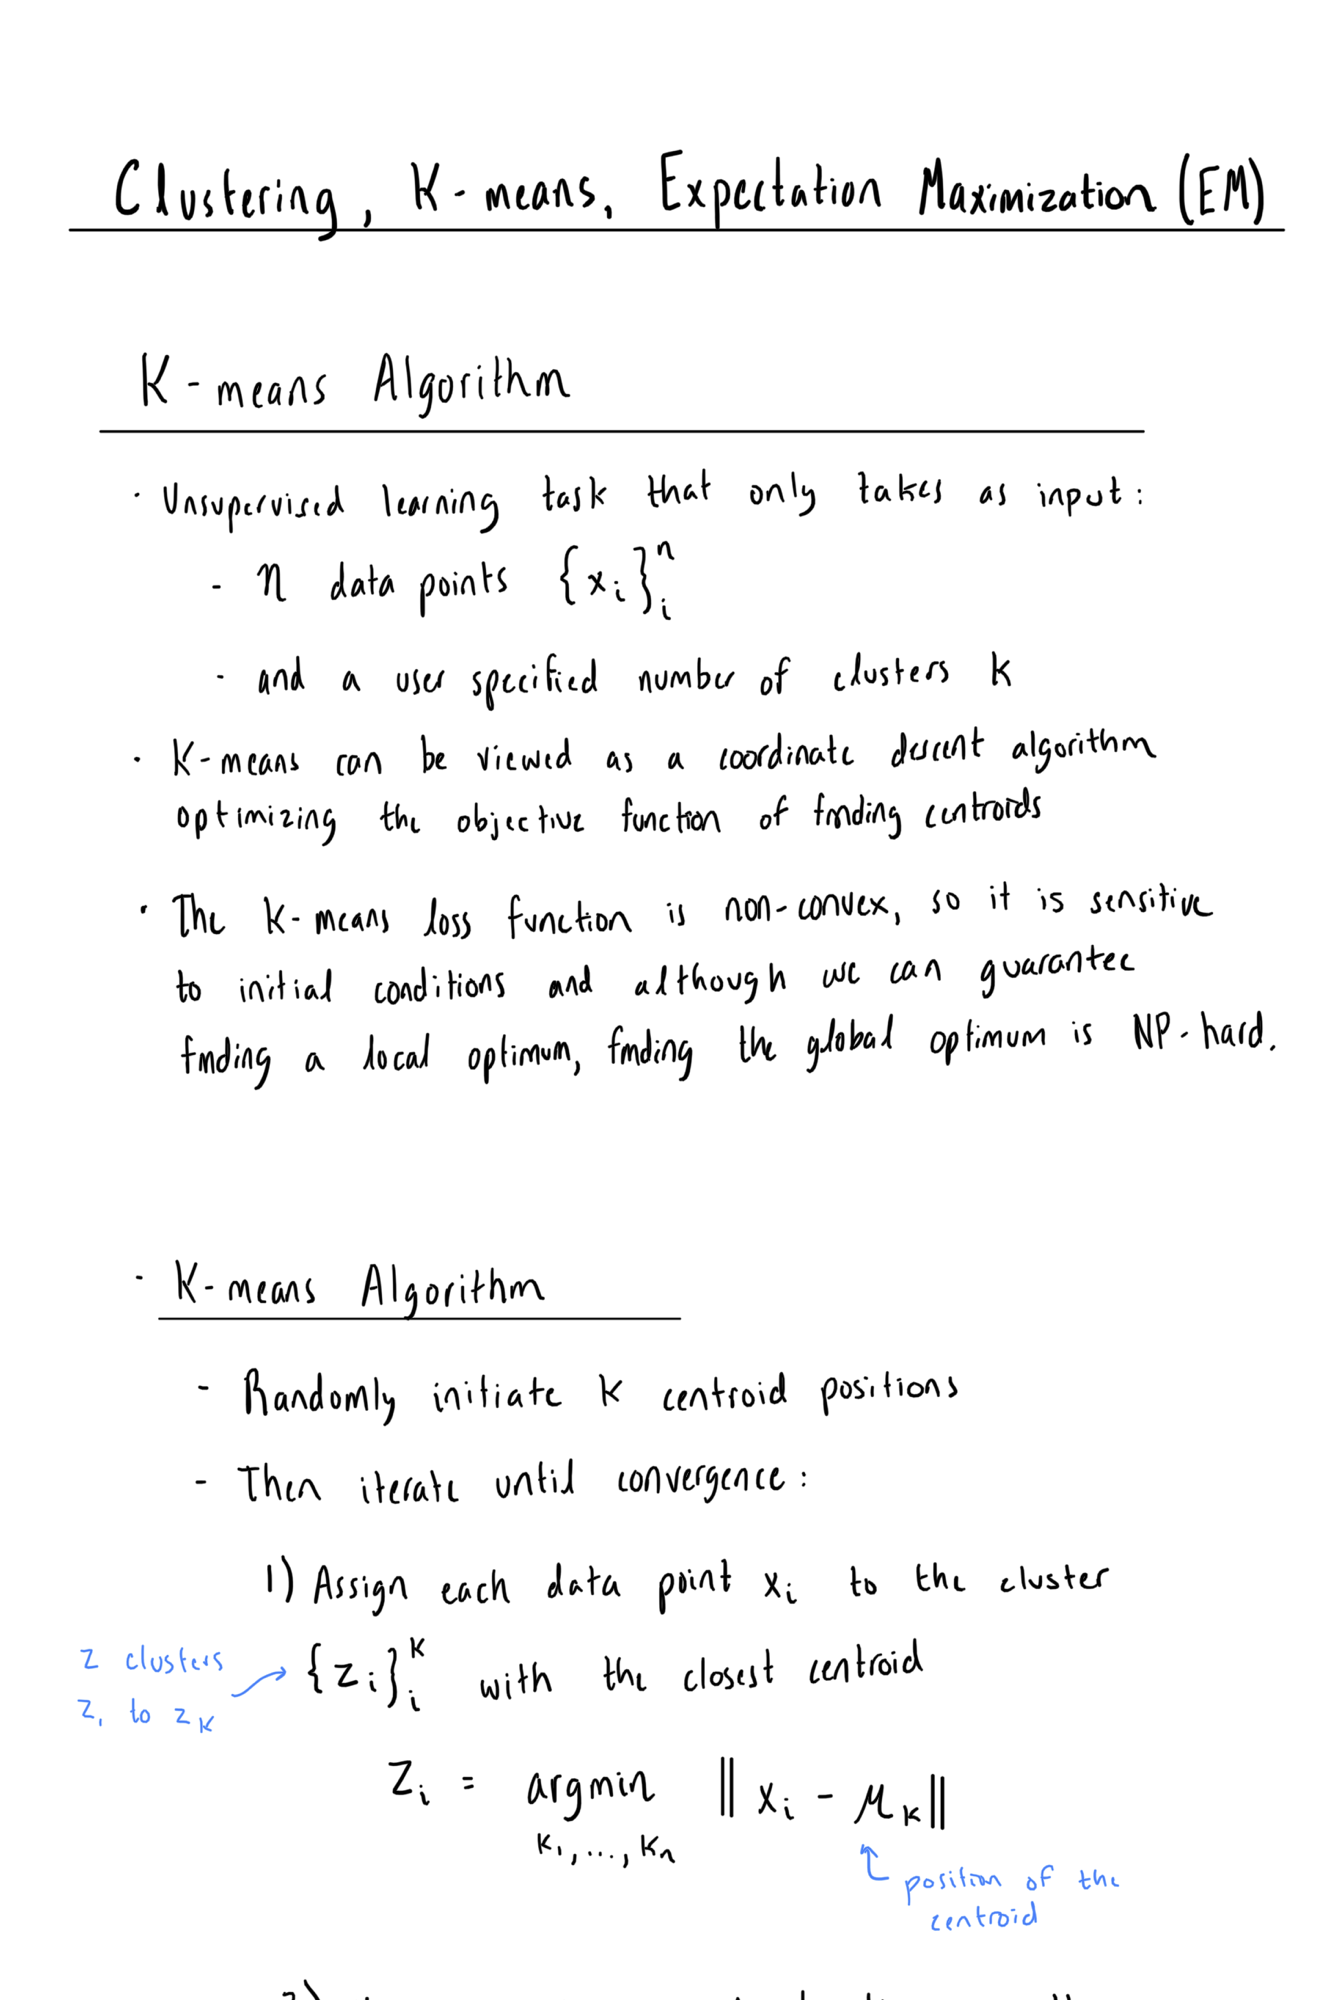 Clustering, K-means, Expectation Maximization (EM)
K-means Algorithm
· Unsupervised learning task that only takes as input:
- n data points {x_i}_i^n
- and a user specified number of clusters k
· K-means can be viewed as a coordinate descent algorithm
optimizing the objective function of finding centroids
· The K-means loss function is non-convex, so it is sensitive
to initial conditions and although we can guarantee
finding a local optimum, finding the global optimum is NP-hard.
· K-means Algorithm
- Randomly initiate K centroid positions
- Then iterate until convergence:
1) Assign each data point x_i to the cluster
z clusters
z_1 to z_K
{z_i}_i^K with the closest centroid
z_i = argmin || x_i - μ_K ||
K_1, ..., K_n
position of the
centroid